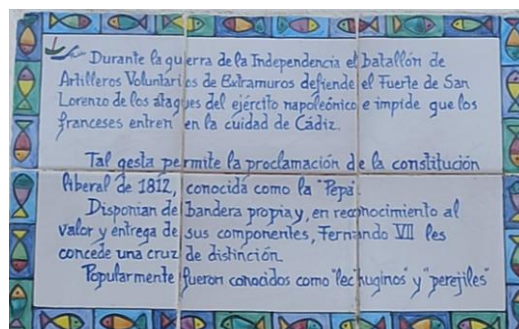 Durante la guerra de la Independencia el batallón de
Artilleros Voluntarios de Extramuros defiende el Fuerte de San
Lorenzo de los ataques del ejército napoleónico e impide que los
franceses entren en la cuidad de Cádiz.
Tal gesta permite la proclamación de la constitución
liberal de 1812, conocida como la "Pepa".
Disponian de bandera propia y, en reconocimiento al
valor y entrega de sus componentes, Fernando VII les
concede una cruz de distinción.
Popularmente fueron conocidos como "lechuginos" y "perejiles"